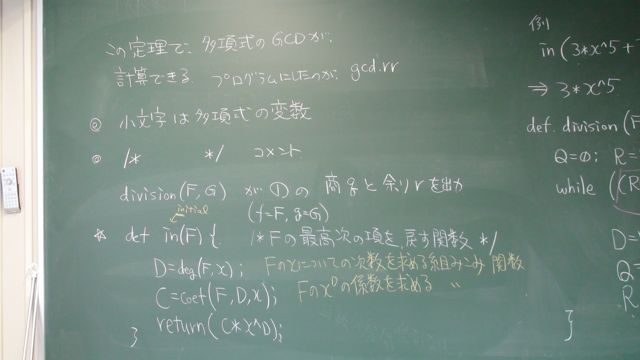 この定理で、多項式のGCDが、
計算できる。プログラムにしたのが、gcd.rr
◎ 小文字は多項式の変数
◎ /* */ コメント
division(F,G) が①の 商gと余りrを出力
(f=F, g=G)
initial
☆ def in(F){ /*Fの最高次の項を、戻す関数 */
D=deg(F,x); Fのxについての次数を求める組みこみ関数
C=coef(F,D,x); Fのx^Dの係数を求める 〃
return(C*x^D);
}
例
in(3*x^5+
⇒ 3*x^5
def division(F
Q=0; R=
while((R
D=
Q=
R
}